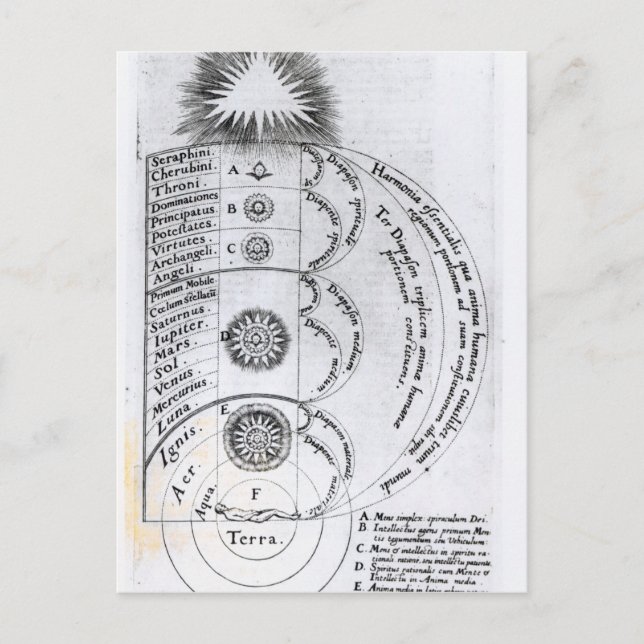 Seraphini.
Cherubini.
Throni.
Dominationes
Principatus.
Potestates.
Virtutes.
Archangeli.
Angeli.
Primum Mobile
Cœlum stellatū
Saturnus.
Iupiter.
Mars.
Sol.
Venus.
Mercurius.
Luna.
Ignis.
Aer.
Aqua.
Terra.
A
B
C
D
E
F
Diapaſon spirituale
Diapente spirituale
Diapaſon medium.
Diapente medium.
Diapaſon materiale.
Diapente materiale.
Harmonia eſſentialis qua anima humana cuiuslibet trium mundi
regionum portionem ad suam conſtitutionem sibi rapit.
Ter Diapaſon triplicem animæ humanæ
portionem conſtituens.
A. Mens simplex: spiraculum Dei.
B Intellectus agens primum Men
tis tegumentum seu Vehiculum:
C. Mens & intellectus in spiritu ra
tionali ratione, seu intellectu patiente.
D. Spiritus rationalis cum Mente &
Intellectu in Anima media.
E. Anima media in